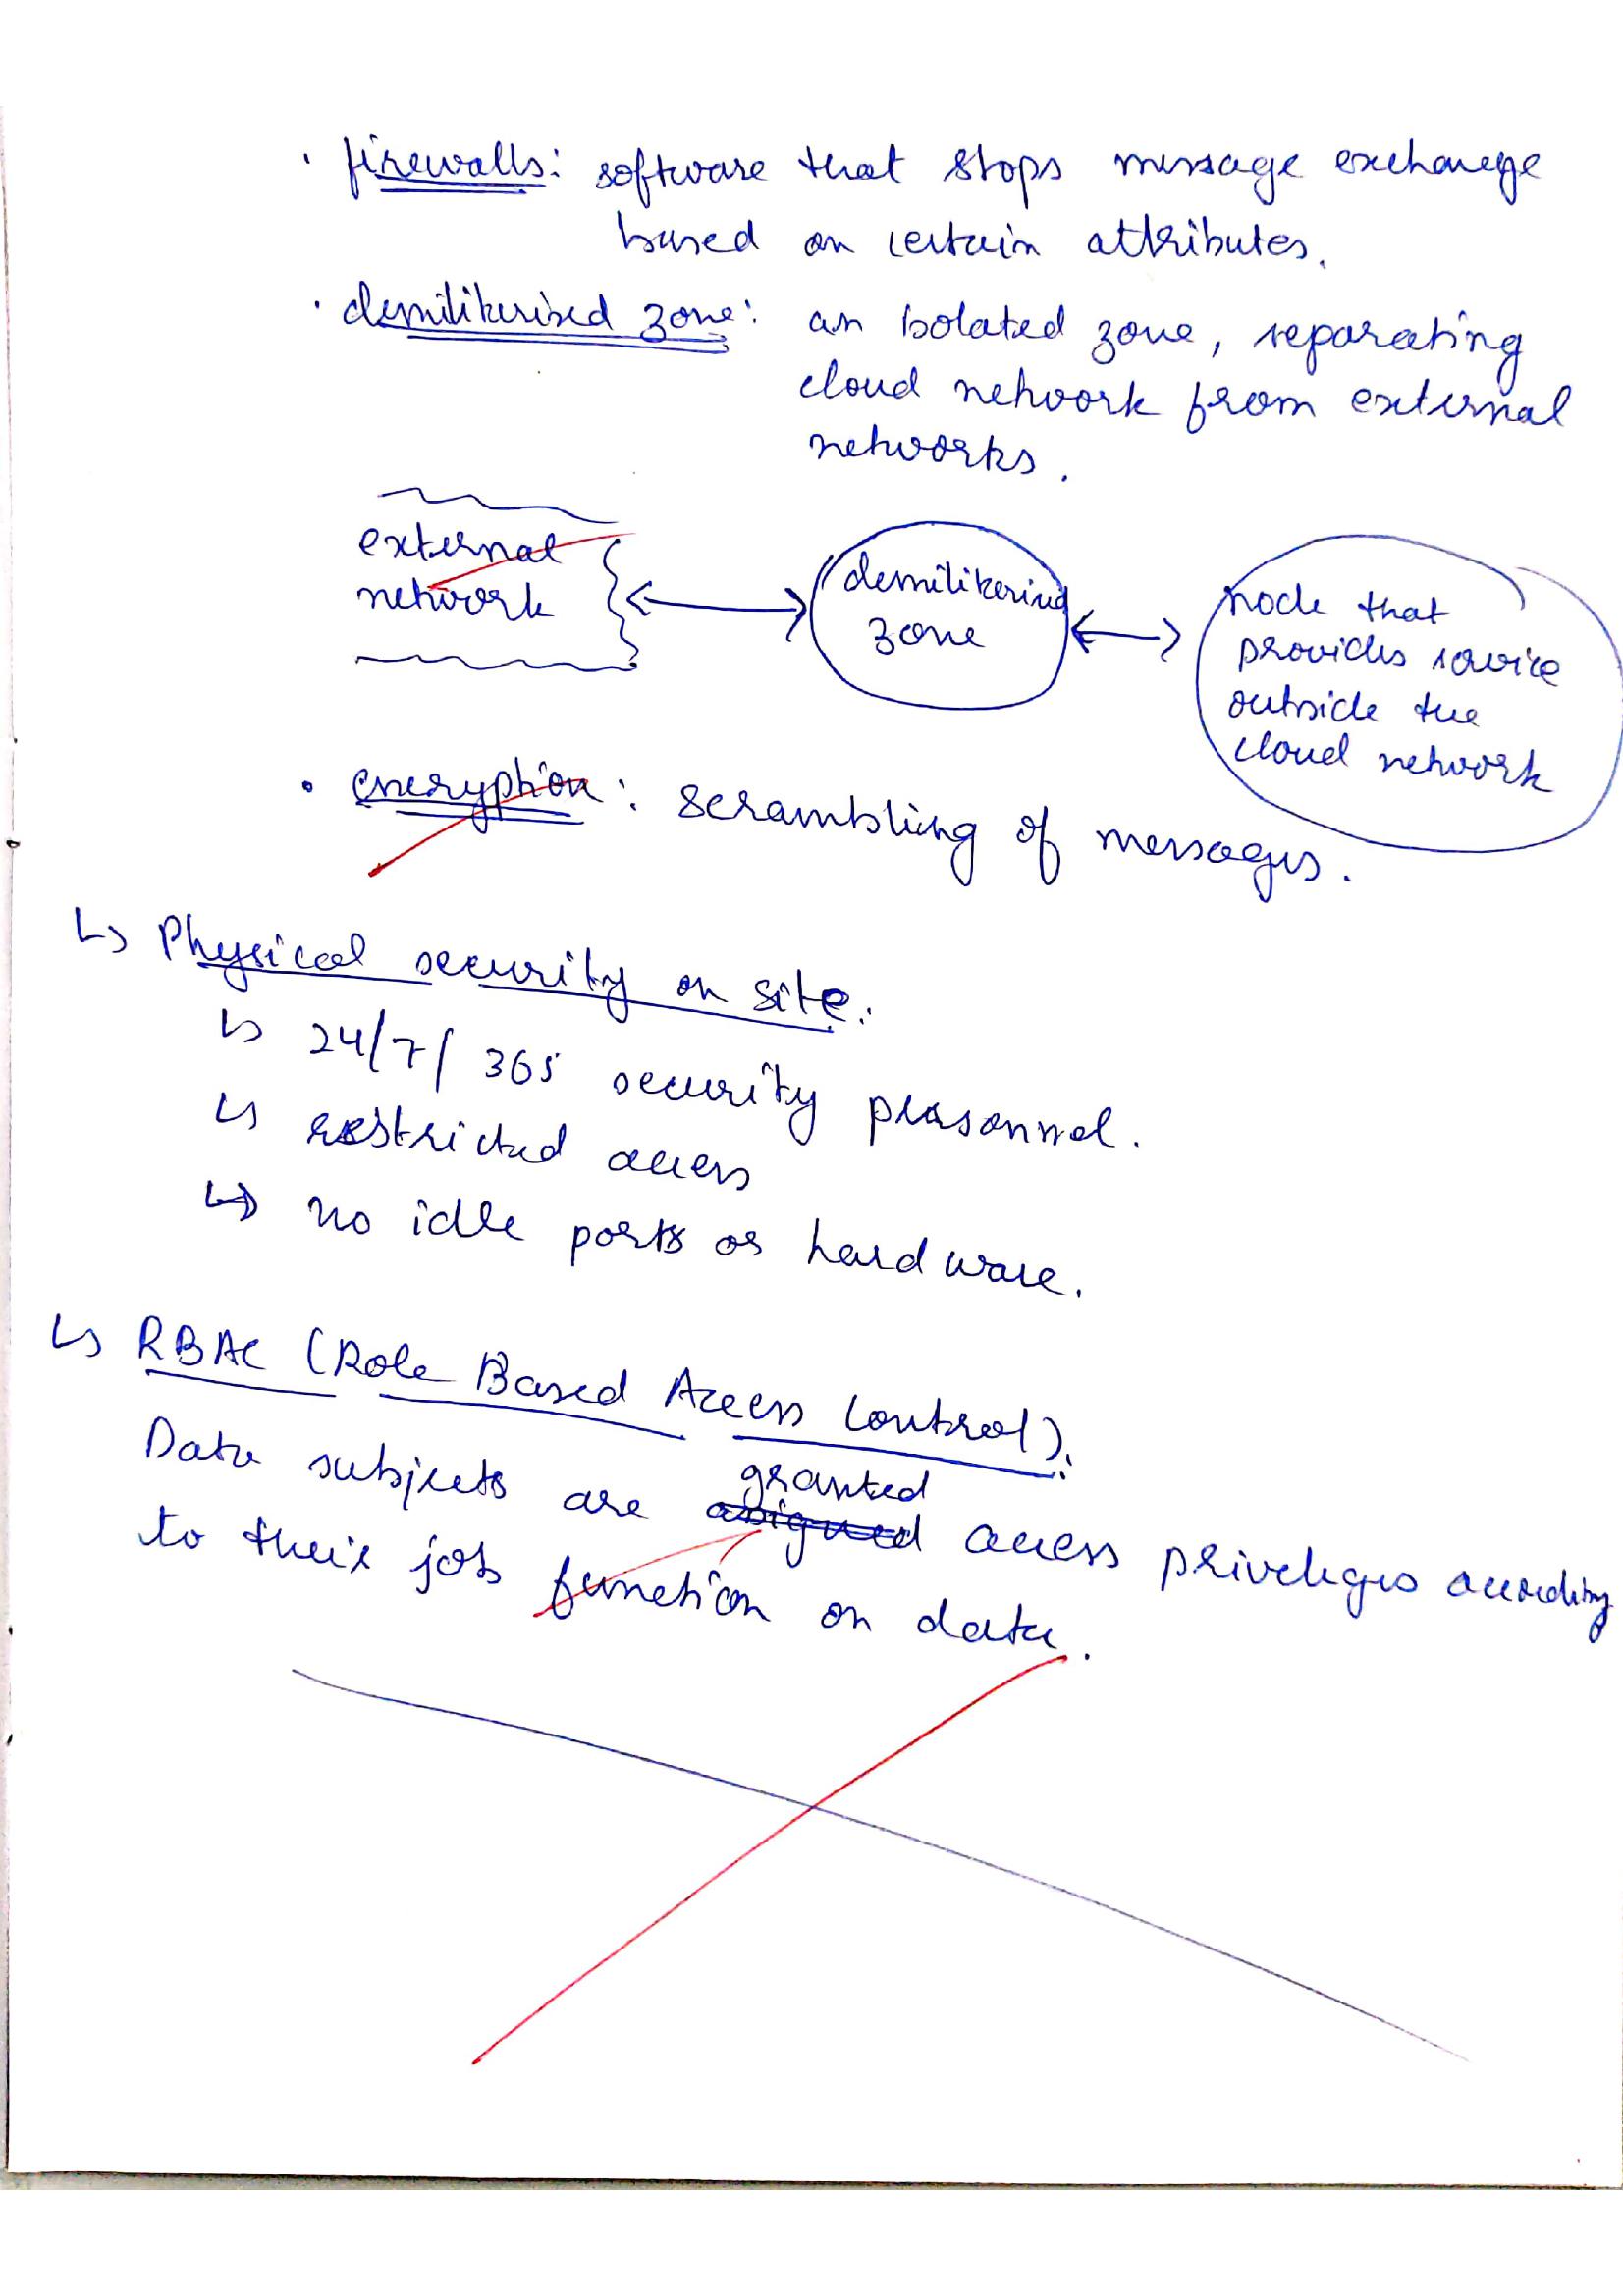 · firewalls: software that stops message exchange
based on certain attributes.
· demilitarised zone: an isolated zone, separating
cloud network from external
networks.
external
network
demilitarised
zone
node that
provides service
outside the
cloud network
• encryption: scrambling of messages.
↳ Physical security on site:
↳ 24/7/365 security personnel.
↳ restricted access
↳ no idle ports or hardware.
↳ RBAC (Role Based Access Control):
Data subjects are granted access priveleges according
to their job function on data.